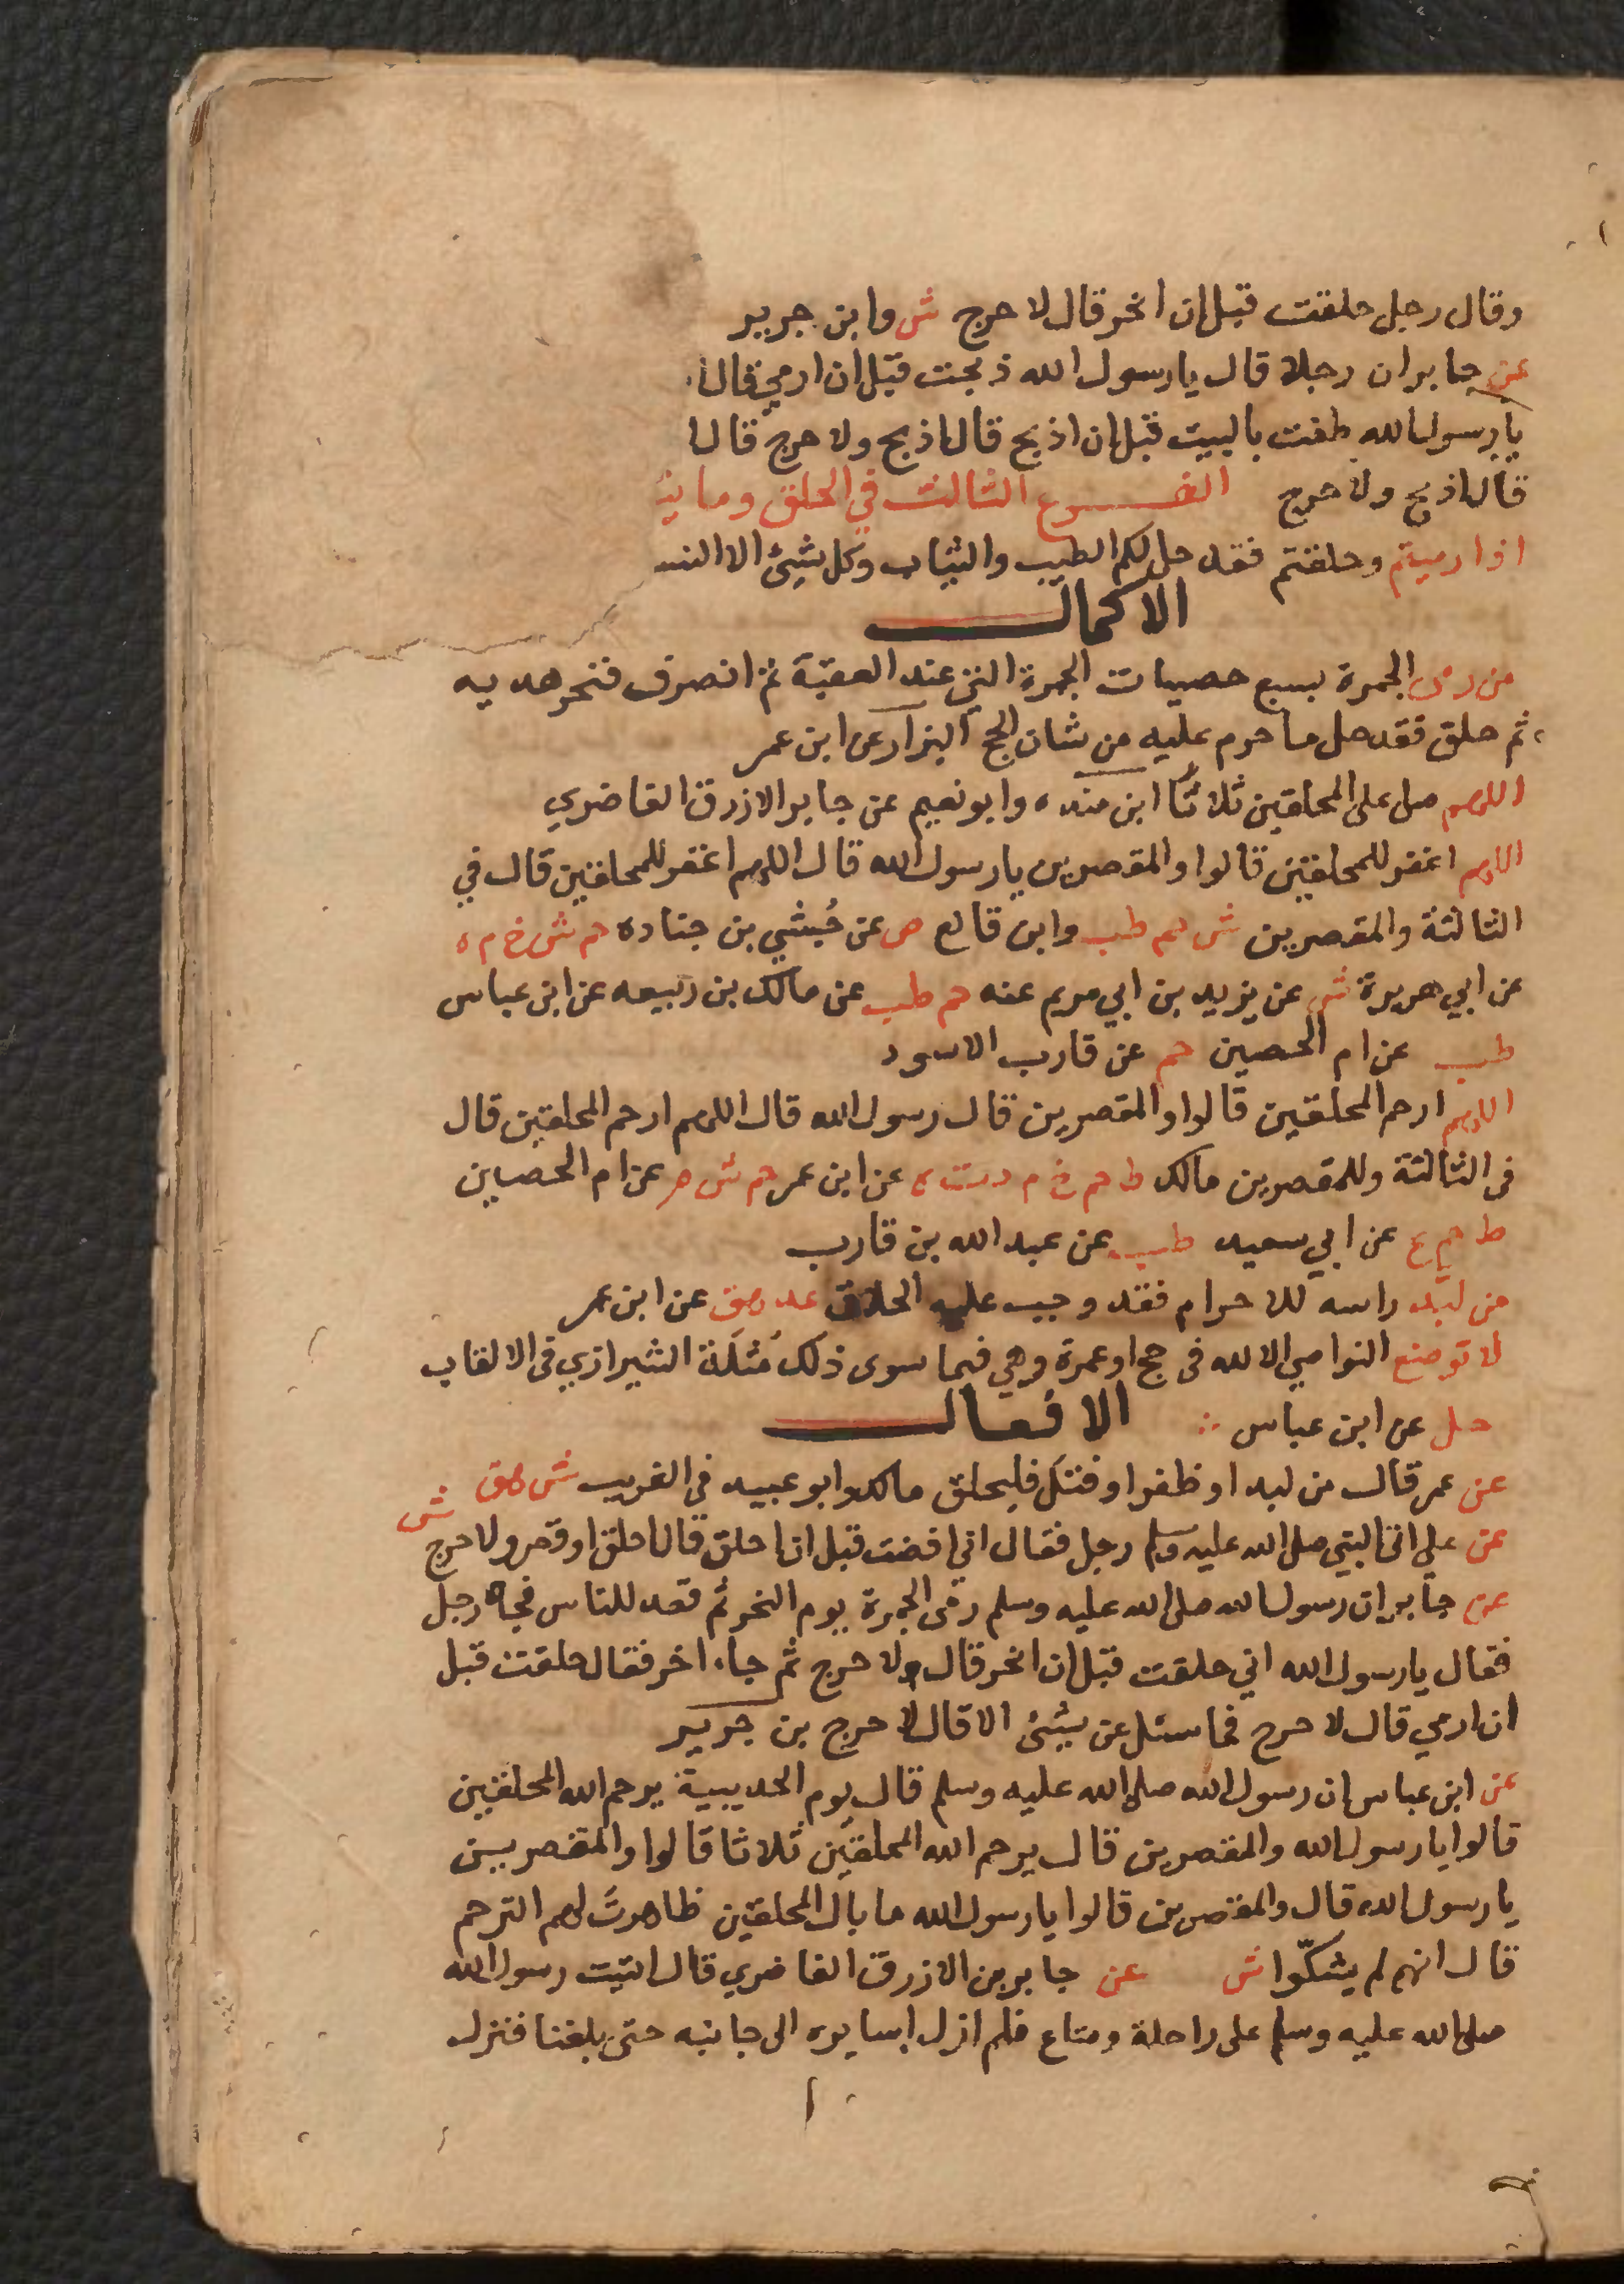 وقال رجل حلقت قبل ان انحر قال لا حرج ش وابن جرير
عن جابر ان رجلا قال يا رسول الله ذبحت قبل ان ارمي قال
يا رسول الله طفت بالبيت قبل ان اذبح قال اذبح ولا حرج قال
قال اذبح ولا حرج الفرع الثالث في الحلق وما
اذا رميتم وحلقتم فقد حل لكم الطيب والثياب وكل شيئ الا النس
الاكمال
من رمى الجمرة بسبع حصيات الجمرة التي عند العقبة ثم انصرف فنحر هديه
ثم حلق فقد حل ما حرم عليه من شان الحج البزار عن ابن عمر
اللهم صل على المحلقين ثلاثا ابن منده وابو نعيم عن جابر الازرق الغاضري
اللهم اغفر للمحلقين قالوا والمقصرين يا رسول الله قال اللهم اغفر للمحلقين قال في
الثالثة والمقصرين ش حم طب وابن قانع ص عن حُبشي بن جناده حم ش خ م ه
عن ابي هريرة ش عن يزيد بن ابي مريم عنه حم طب عن مالك بن ربيعه عن ابن عباس
طب عن ام الحصين حم عن قارب الاسود
اللهم ارحم المحلقين قالوا والمقصرين قال رسول الله قال اللهم ارحم المحلقين قال
فى الثالثة وللمقصرين مالك ط حم خ م د ت ه عن ابن عمر حم ش م عن ام الحصين
ط حم ع عن ابي سعيد طب عن عبد الله بن قارب
من لبد راسه للاحرام فقد وجب عليه الحلاق عد هق عن ابن عمر
لا توضع النواصي الا لله فى حج او عمرة وهي فيما سوى ذلك مُثلَة الشيرازي فى الالقاب
حل عن ابن عباس الافعال
عن عمر قال من لبد او ظفر او فتل فليحلق مالك وابو عبيد فى الغريب ش هق ش
عن علي اتى النبي صلى الله عليه وسلم رجل فقال اني افضت قبل ان احلق قال احلق او قصر ولا حرج
عن جابر ان رسول الله صلى الله عليه وسلم رمى الجمرة يوم النحر ثم قعد للناس فجاه رجل
فقال يا رسول الله اني حلقت قبل ان انحر قال ولا حرج ثم جاء اخر فقال حلقت قبل
ان ارمي قال لا حرج فما سئل عن شيئ الا قال لا حرج بن جرير
عن ابن عباس ان رسول الله صلى الله عليه وسلم قال يوم الحديبية يرحم الله المحلقين
قالوا يا رسول الله والمقصرين قال يرحم الله المحلقين ثلاثا قالوا والمقصريين
يا رسول الله قال والمقصرين قالوا يا رسول الله ما بال المحلقين ظاهرت لهم الترحم
قال انهم لم يشكّوا ش عن جابر بن الازرق الغاضري قال اتيت رسول الله
صلى الله عليه وسلم على راحلة ومتاع فلم ازل اسايره الى جانبه حتى بلغنا فنزل